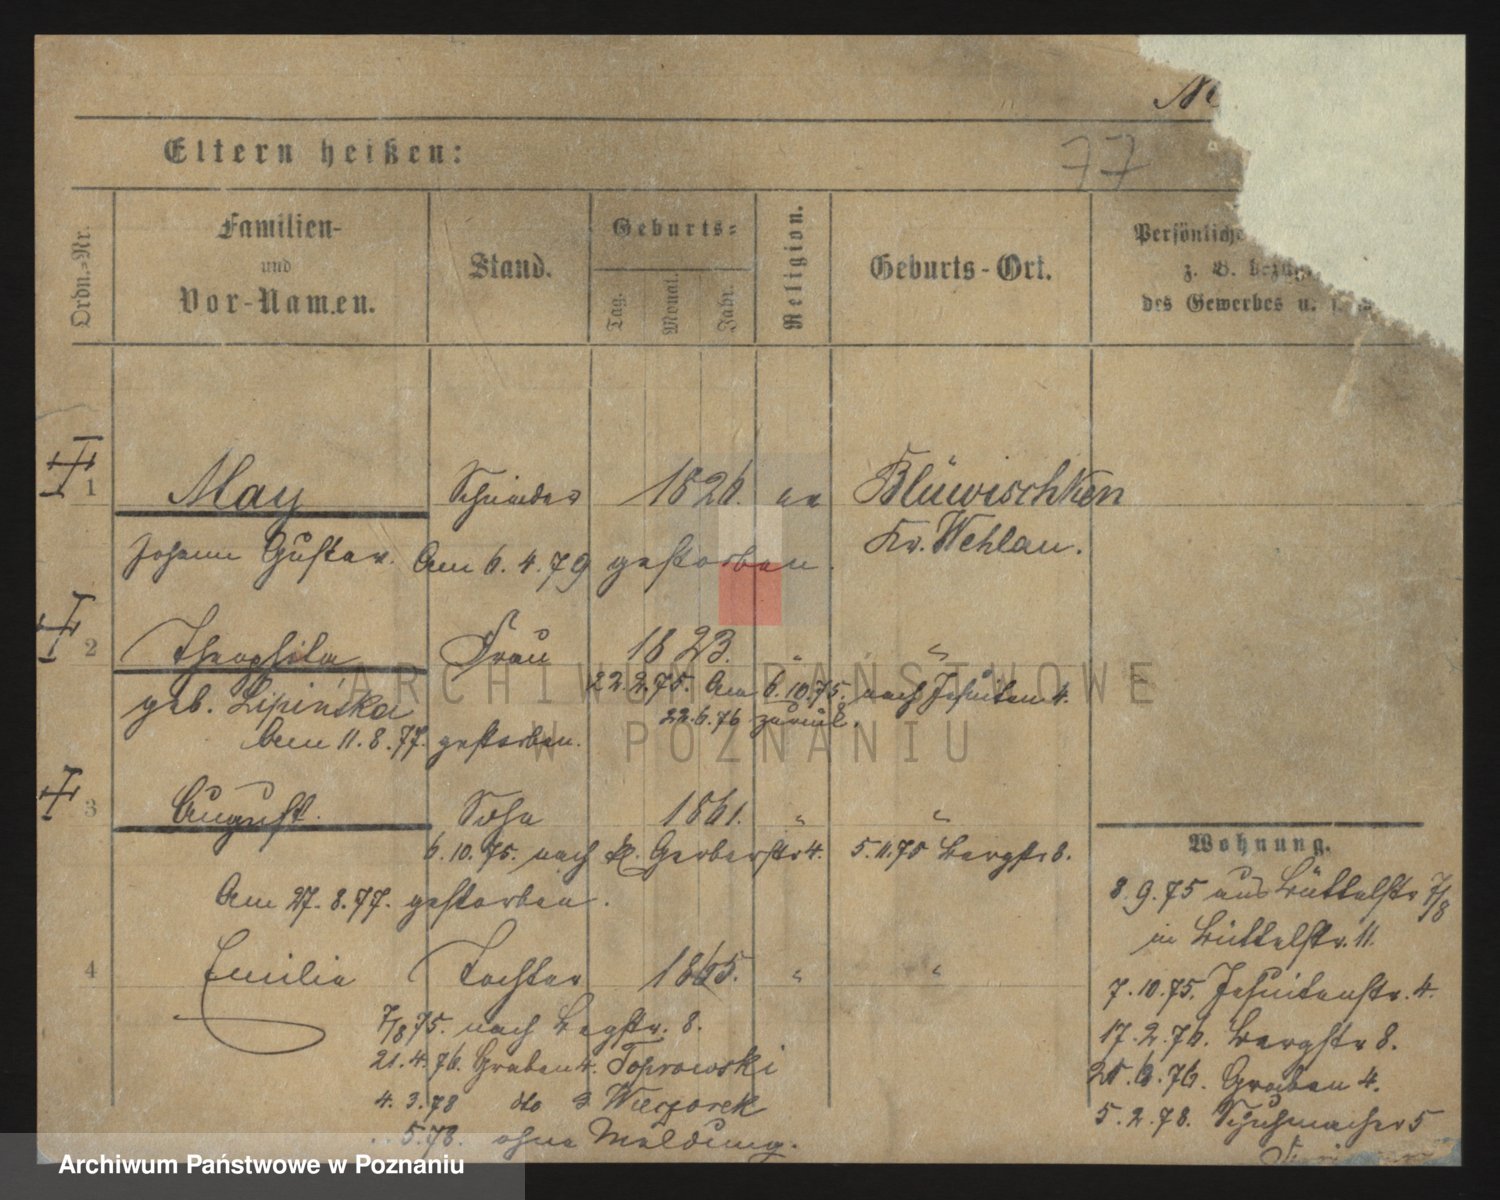 77
Eltern heißen:
Ordn.-Nr.
Familien-
und
Vor-Namen.
Stand.
Geburts-
Tag.
Monat.
Jahr.
Religion.
Geburts-Ort.
Persönliche
z. B. bezügl.
des Gewerbes u. s. w.
1 May Schneider 1826. ev Blüwischken
Johann Gustav. Am 6.4.79 gestorben. Kr. Wehlau.
2 Theophila Frau 1823. " "
geb. Lipinska 22.2.75. Am 6.10.75. nach Jesuiten 4.
22.6.76 zurück.
Am 11.8.77. gestorben.
3 August. Sohn 1861. " "
6.10.75. nach kl. Gerberstr 4. 5.11.75 Bergstr 8.
Am 27.8.77. gestorben.
4 Emilie Tochter 1865. " "
7/8 75. nach Bergstr. 8.
21.4.76. Graben 4. Toprowski
4.3.78 dto 3 Wieczorek
5.78. ohne Meldung.
Wohnung.
8.9.75 aus Büttelstr 7/8
in Büttelstr. 11.
7.10.75. Jesuitenstr. 4.
17.2.76. Bergstr 8.
25.6.76. Graben 4.
5.2.78. Schuhmacher 5
ARCHIWUM PAŃSTWOWE
W POZNANIU
Archiwum Państwowe w Poznaniu